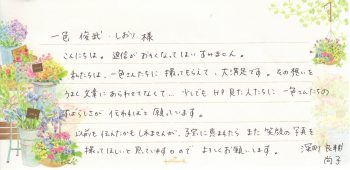 一色 俊武・しおり 様
こんにちは。返信がおそくなってしまいすみません。
私たちは、一色さんたちに撮ってもらえて、大満足です。その想いを
うまく文章にあらわせてなくて… 少しでも HP 見た人たちに 一色さんたちの
すばらしさが 伝わればと 願っています。
以前も伝えたかもしれませんが、子宝に恵まれたら また 笑顔の写真を
撮ってほしいと思っていますので よろしくお願いします。
深町 良樹
尚子